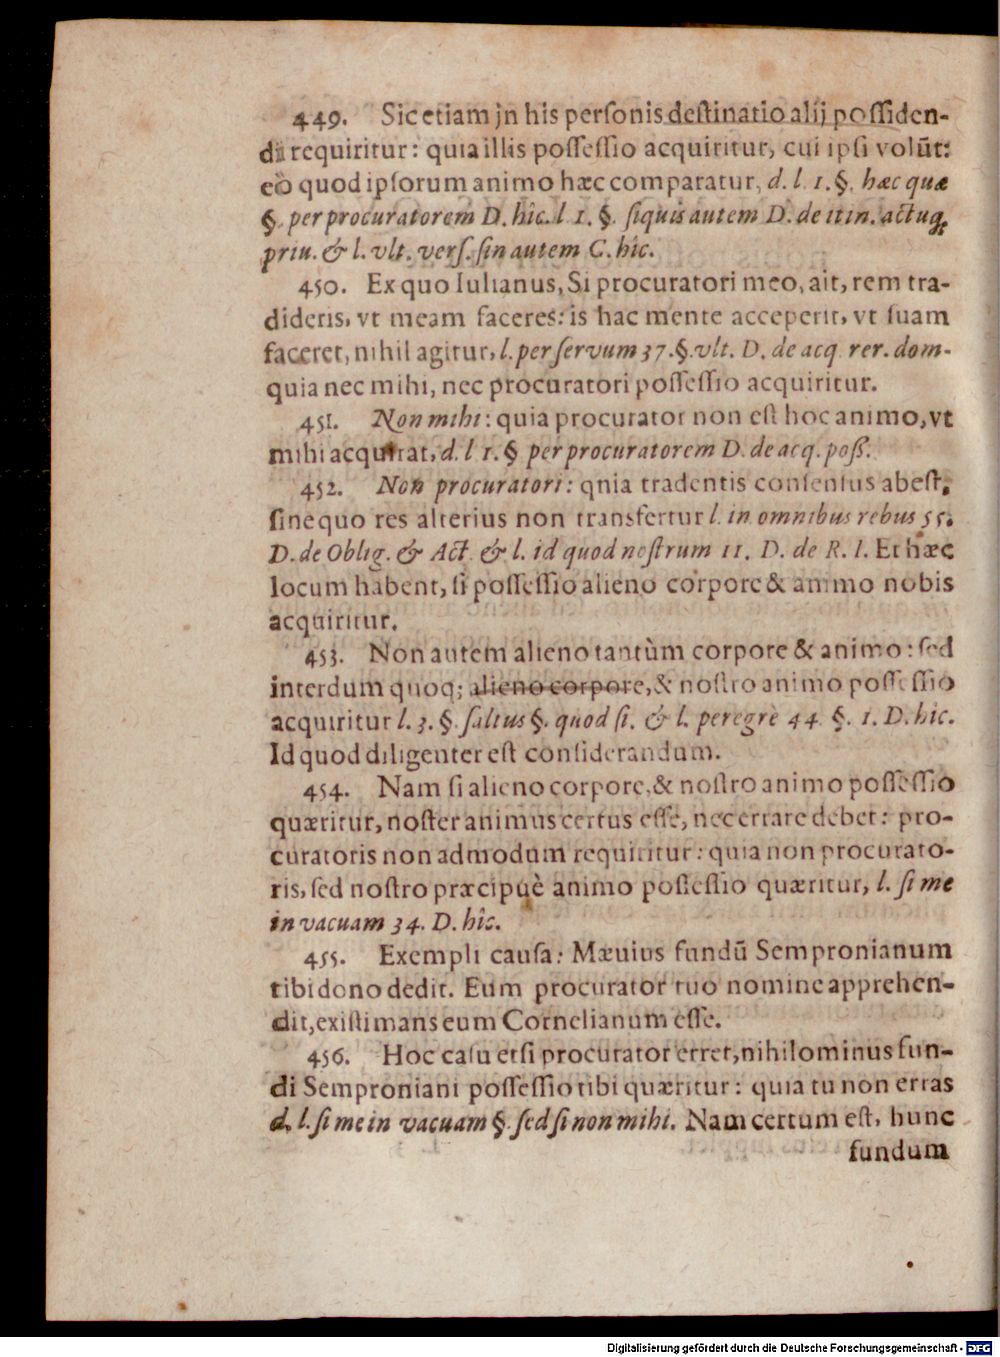 449. Sic etiam jn his personis destinatio alij possiden-
di requiritur: quia illis possessio acquiritur, cui ipsi volūt:
eò quod ipsorum animo hæc comparatur, d. l. 1. §. hæc quæ
§. per procuratorem D. hîc. l 1. §. siquis autem D. de itin. actuq;
priu. & l. vlt. vers. sin autem C. hîc.
450. Ex quo Iulianus, Si procuratori meo, ait, rem tra-
dideris, vt meam faceres: is hac mente acceperit, vt suam
faceret, nihil agitur, l. per servum 37. §. vlt. D. de acq. rer. dom-
quia nec mihi, nec procuratori possessio acquiritur.
451. Non mihi: quia procurator non est hoc animo, vt
mihi acquirat, d. l 1. § per procuratorem D. de acq. poß.
452. Non procuratori: qnia tradentis consensus abest,
sine quo res alterius non transfertur l. in omnibus rebus 55.
D. de Oblig. & Act. & l. id quod nostrum 11. D. de R. I. Et hæc
locum habent, si possessio alieno corpore & animo nobis
acquiritur.
453. Non autem alieno tantùm corpore & animo: sed
interdum quoq; alieno corpore, & nostro animo possessio
acquiritur l. 3. §. saltus §. quod si. & l. peregrè 44 §. 1. D. hîc.
Id quod diligenter est considerandum.
454. Nam si alieno corpore, & nostro animo possessio
quæritur, noster animus certus esse, nec errare debet: pro-
curatoris non admodum requiritur: quia non procurato-
ris, sed nostro præcipuè animo possessio quæritur, l. si me
in vacuam 34. D. hîc.
455. Exempli causa: Mævius fundū Sempronianum
tibi dono dedit. Eum procurator tuo nomine apprehen-
dit, existimans eum Cornelianum esse.
456. Hoc casu etsi procurator erret, nihilominus fun-
di Semproniani possessio tibi quæritur: quia tu non erras
d. l. si me in vacuam §. sed si non mihi. Nam certum est, hunc
fundum
Digitalisierung gefördert durch die Deutsche Forschungsgemeinschaft - DFG